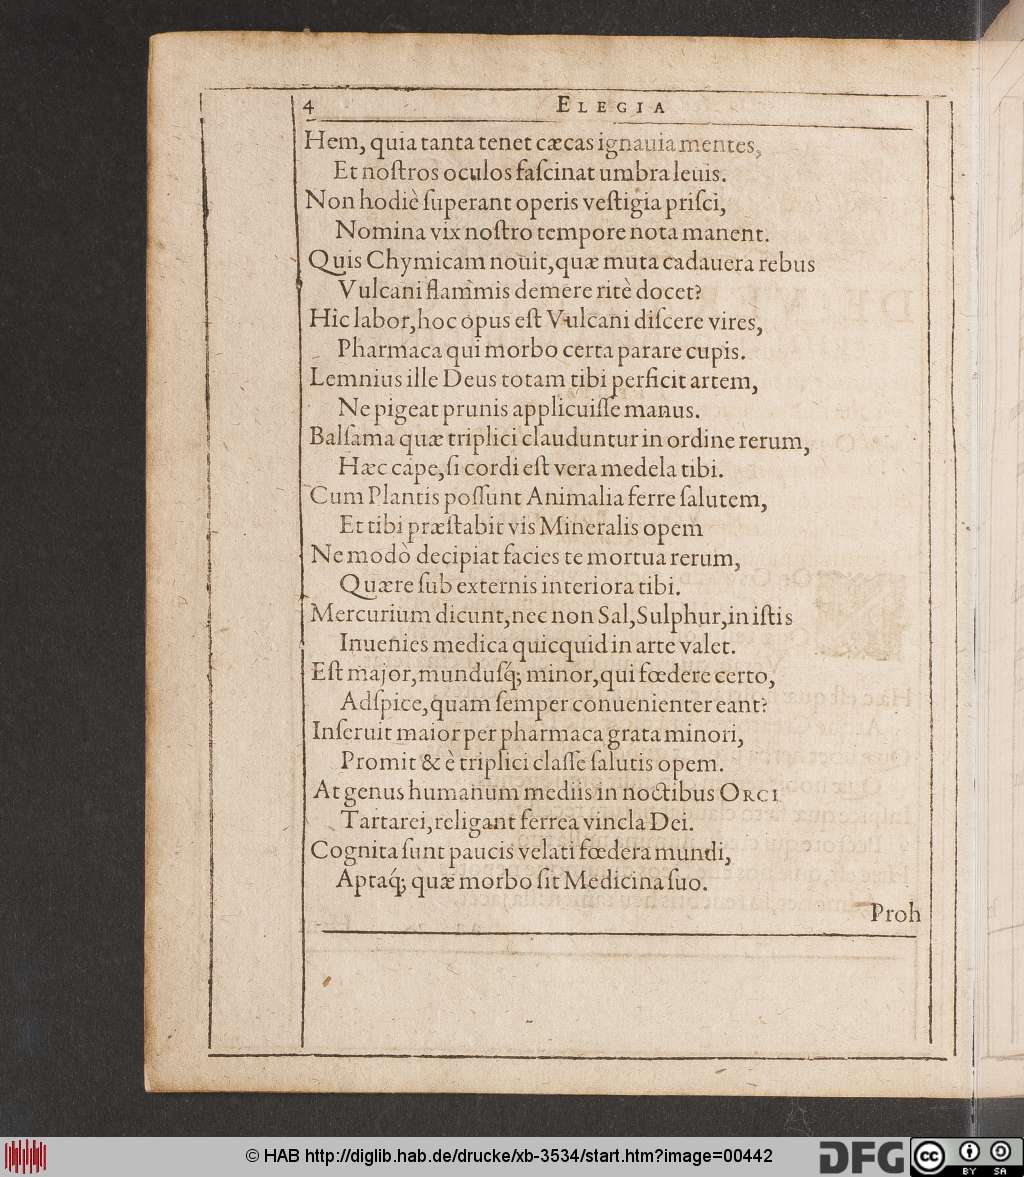 4 ELEGIA
Hem, quia tanta tenet cæcas ignauia mentes,
Et noſtros oculos faſcinat umbra leuis.
Non hodiè ſuperant operis veſtigia priſci,
Nomina vix noſtro tempore nota manent.
Quis Chymicam nouit, quæ muta cadauera rebus
Vulcani flammis demere ritè docet?
Hic labor, hoc opus eſt Vulcani diſcere vires,
Pharmaca qui morbo certa parare cupis.
Lemnius ille Deus totam tibi perficit artem,
Ne pigeat prunis applicuiſſe manus.
Balſama quæ triplici clauduntur in ordine rerum,
Hæc cape, ſi cordi eſt vera medela tibi.
Cum Plantis poſſunt Animalia ferre ſalutem,
Et tibi præſtabit vis Mineralis opem
Ne modò decipiat facies te mortua rerum,
Quære ſub externis interiora tibi.
Mercurium dicunt, nec non Sal, Sulphur, in iſtis
Inuenies medica quicquid in arte valet.
Eſt major, munduſq́; minor, qui fœdere certo,
Adſpice, quam ſemper conuenienter eant?
Inſeruit maior per pharmaca grata minori,
Promit & è triplici claſſe ſalutis opem.
At genus humanum mediis in noctibus ORCI
Tartarei, religant ferrea vincla Dei.
Cognita ſunt paucis velati fœdera mundi,
Aptaq́; quæ morbo ſit Medicina ſuo.
Proh
© HAB http://diglib.hab.de/drucke/xb-3534/start.htm?image=00442
DFG
cc
BY SA